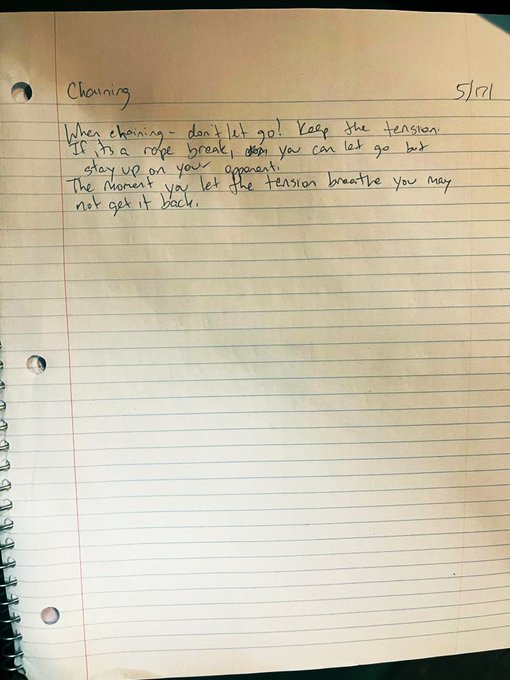 Chaining
5/17/
When chaining - don't let go! Keep the tension.
If its a rope break, you can let go but
stay up on your opponent.
The moment you let the tension breathe you may
not get it back.